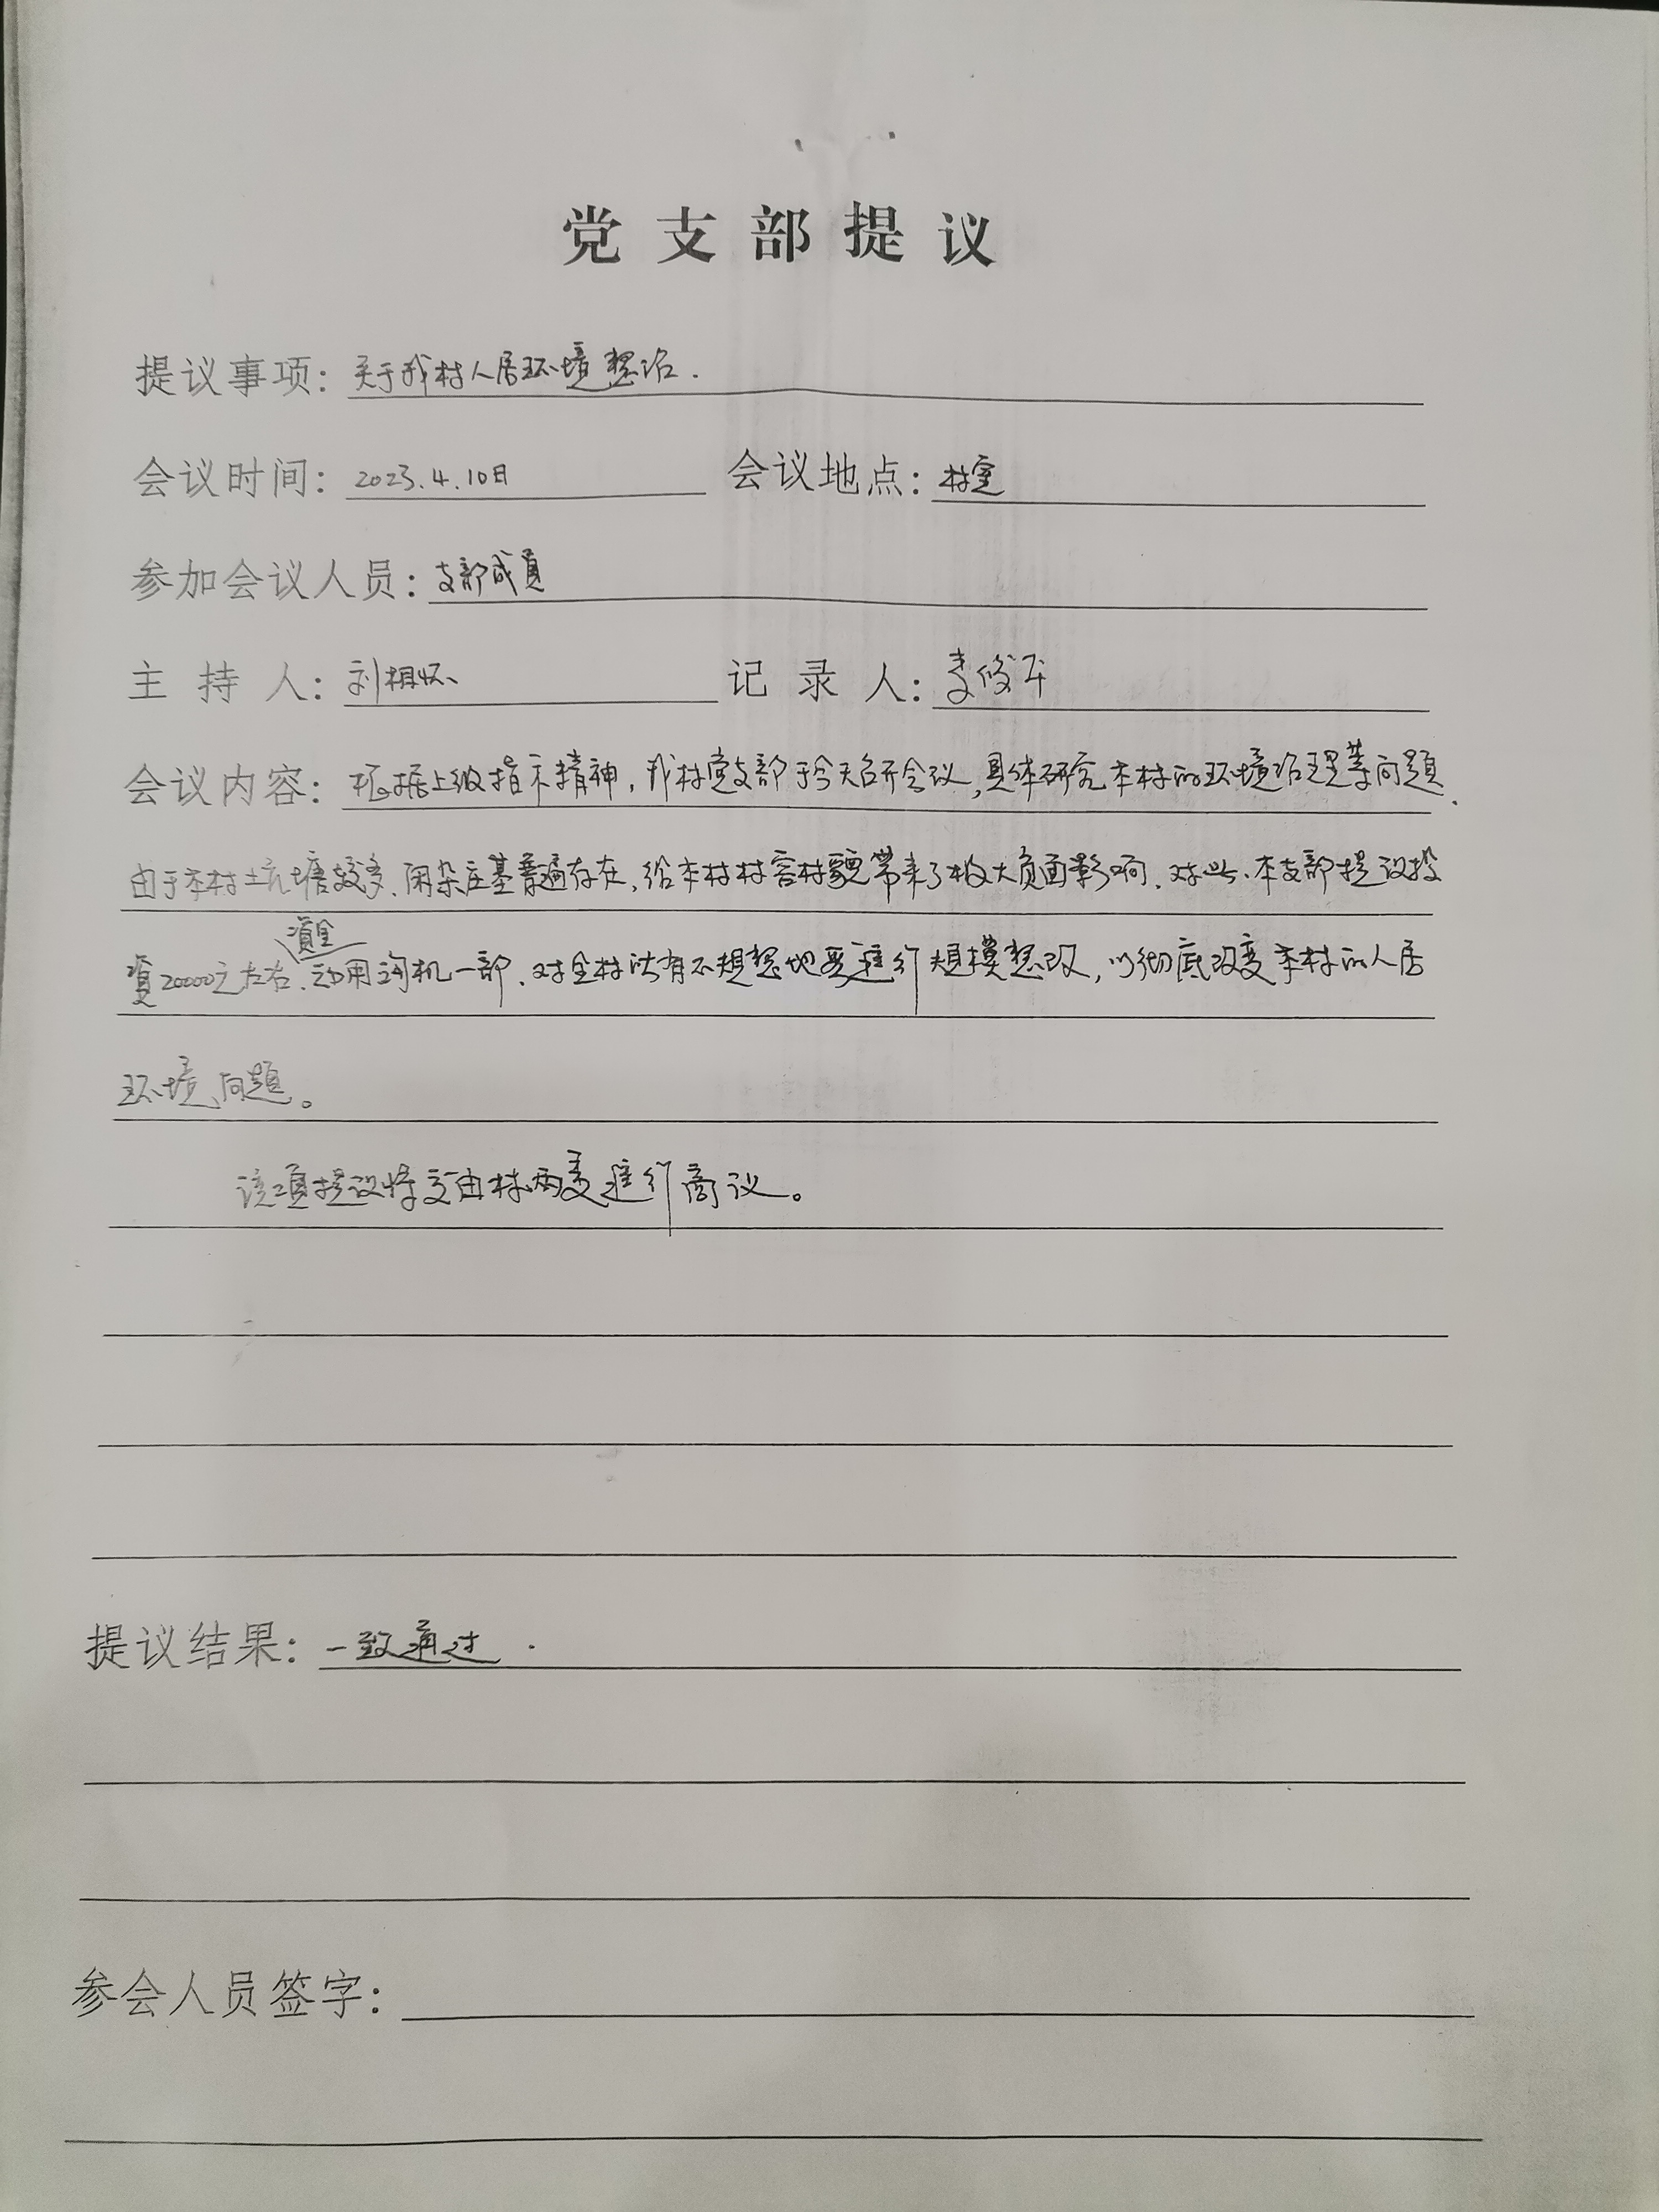 党支部提议
提议事项：关于我村人居环境整治.
会议时间：2023.4.10日 会议地点：村室
参加会议人员：支部成员
主持人：刘相怀 记录人：李俊平
会议内容：根据上级指示精神，我村党支部于今天召开会议，具体研究本村的环境治理等问题.
由于本村坑塘较多、闲杂庄基普遍存在，给本村村容村貌带来了极大负面影响.对此、本支部提议投
资金
资20000元左右.动用沟机一部.对全村所有不规整地要进行规模整改，以彻底改变本村的人居
环境问题。
该项提议将交由村两委进行商议。
提议结果：一致通过.
参会人员签字：